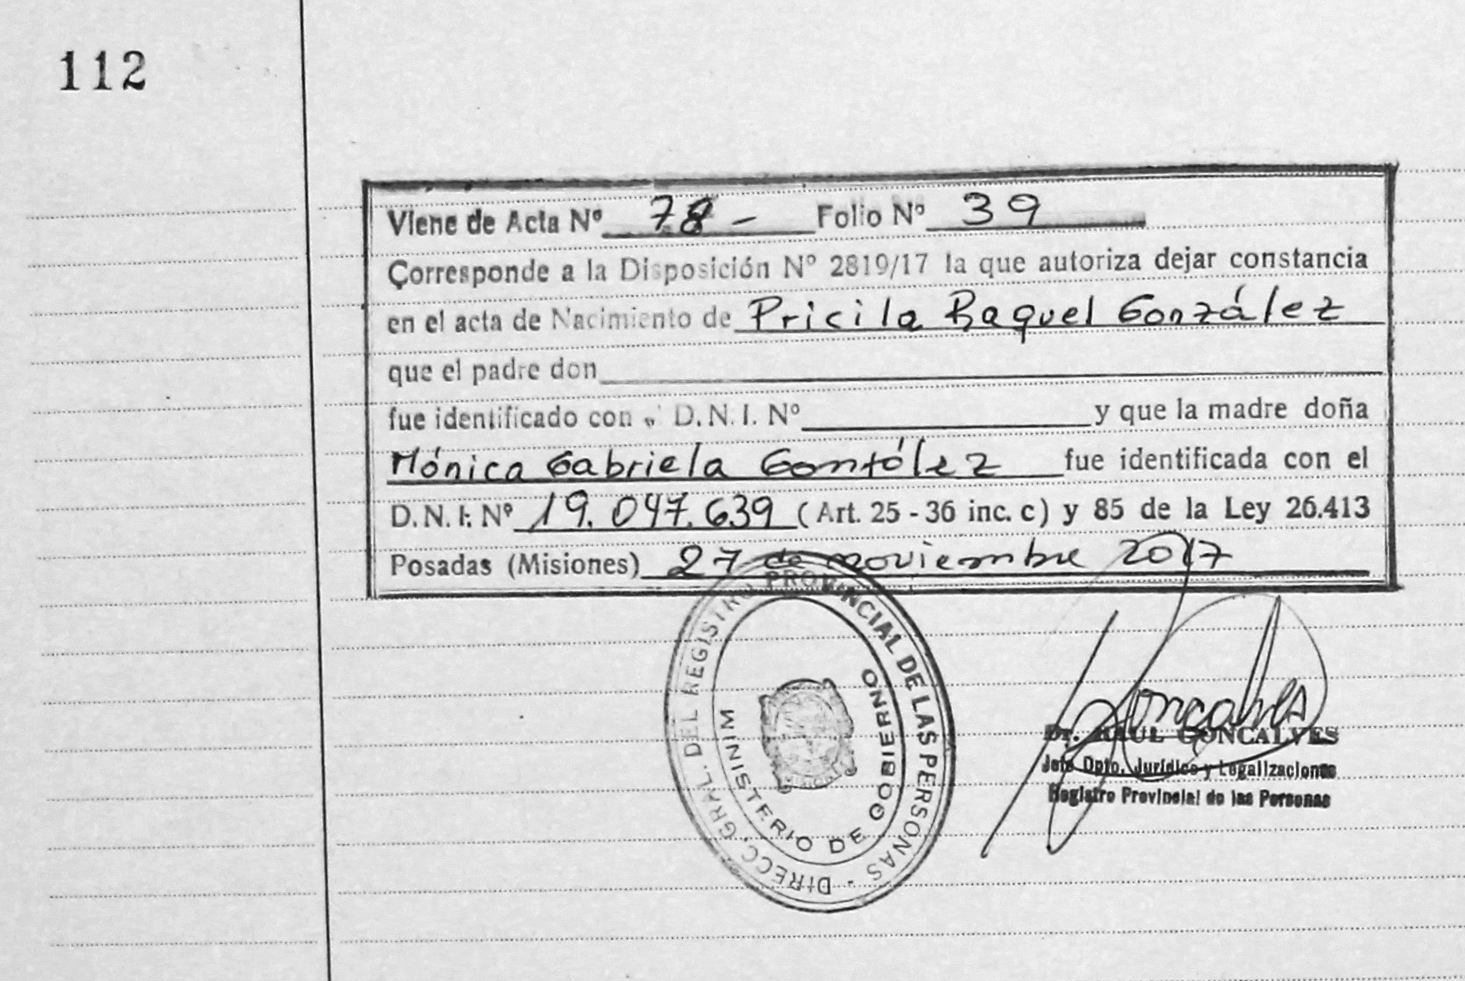 112
Viene de Acta Nº 78 - Folio Nº 39
Corresponde a la Disposición Nº 2819/17 la que autoriza dejar constancia
en el acta de Nacimiento de Pricila Raquel González
que el padre don
fue identificado con D.N.I. Nº y que la madre doña
Mónica Gabriela González fue identificada con el
D.N.I. Nº 19.047.639 (Art. 25 - 36 inc. c) y 85 de la Ley 26.413
Posadas (Misiones) 27 de noviembre 2017
DIRECC. GRAL. DEL REGISTRO PROVINCIAL DE LAS PERSONAS -
MINISTERIO DE GOBIERNO
Goncalves
Dr. RAUL GONCALVES
Jefe Dpto. Jurídico y Legalizaciones
Registro Provincial de las Personas